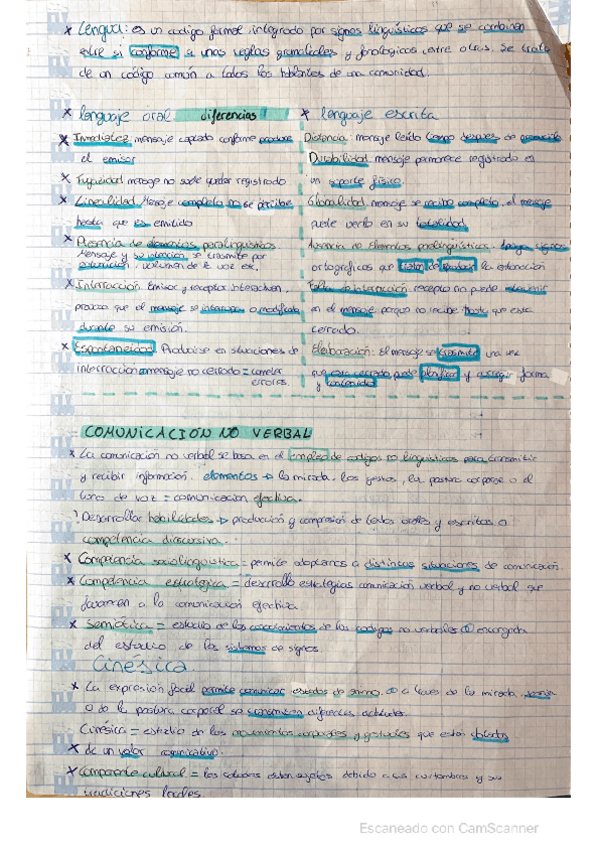 * Lengua: es un codigo formal integrado por signos lingüísticos que se combinan
entre si conforme a unas reglas gramaticales y fonologicas entre otras. Se trata
de un codigo común a todos los hablantes de una comunidad.
* lenguaje oral diferencias * lenguaje escrito
* Inmediatez: mensaje captado conforme produce
el emisor
* Fugacidad mensaje no suele quedar registrado
* Linealidad Mensaje completo no se percibe
hasta que es emitido
* Presencia de elementos paralingüísticos
Mensaje y su intención se transmite por
entonación, volumen de la voz etc.
* Interacción Emisor y receptor interactuan,
provoca que el mensaje se interrumpa o modifique
durante su emisión.
* Espontaneidad Producirse en situaciones de
interacción mensaje no cerrado = cometer
errores.
Distancia: mensaje leído tiempo después de
Durabilidad: mensaje permanece registrado en
un soporte físico.
Globalidad: mensaje se recibe completo, el mensaje
puede verlo en su totalidad
Ausencia de elementos paralingüísticos, signos
ortográficos que de la entonación
Falta de interacción receptor no puede
en el mensaje porque no recibe hasta que esta
cerrado.
Elaboración: El mensaje se transmite una vez
que esta cerrado puede planificar y corregir forma
y contenido
COMUNICACIÓN NO VERBAL
* La comunicación no verbal se basa en el empleo de codigos no lingüísticos para transmitir
y recibir información. elementos → la mirada, los gestos, la postura corporal o el
tono de voz = comunicacion efectiva.
! Desarrollar habilidades → producción y compresion de textos orales y escritos o
competencia discursiva.
* Competencia sociolingüística = permite adaptarnos a distintas situaciones de comunicación.
* Competencia estratégica = desarrollo estrategias comunicación verbal y no verbal que
favorecen a la comunicación efectiva
* Semiótica = estudio de los conocimientos de los codigos no verbales encargada
del estudio de los sistemas de signos.
Cinésica
* La expresión facial permite comunicar estados de animo, a traves de la mirada,
o de la postura corporal se transmiten diferentes actitudes.
Cinésica = estudio de los movimientos corporales y gestuales que están dotados
* de un valor comunicativo.
* Componente cultural = los estan sujetos debido a las costumbres y sus
tradiciones locales.
Escaneado con CamScanner